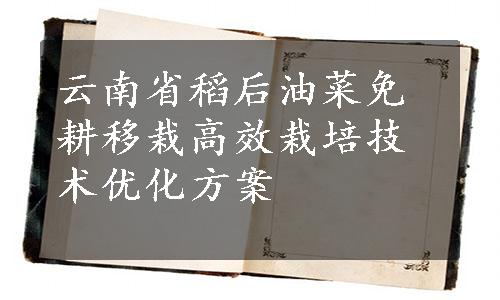 云南省稻后油菜免
耕移栽高效栽培技
术优化方案